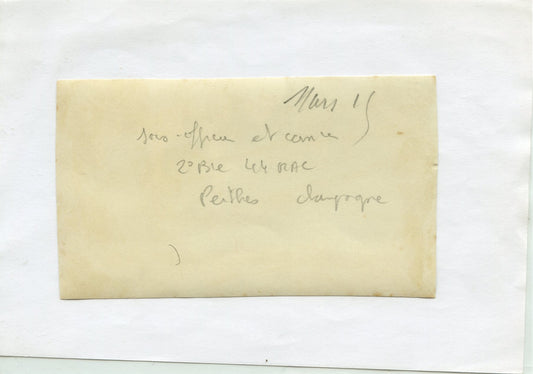 Mars 15
sous-officier et
2e Bie 44 RAC
Perthes Champagne